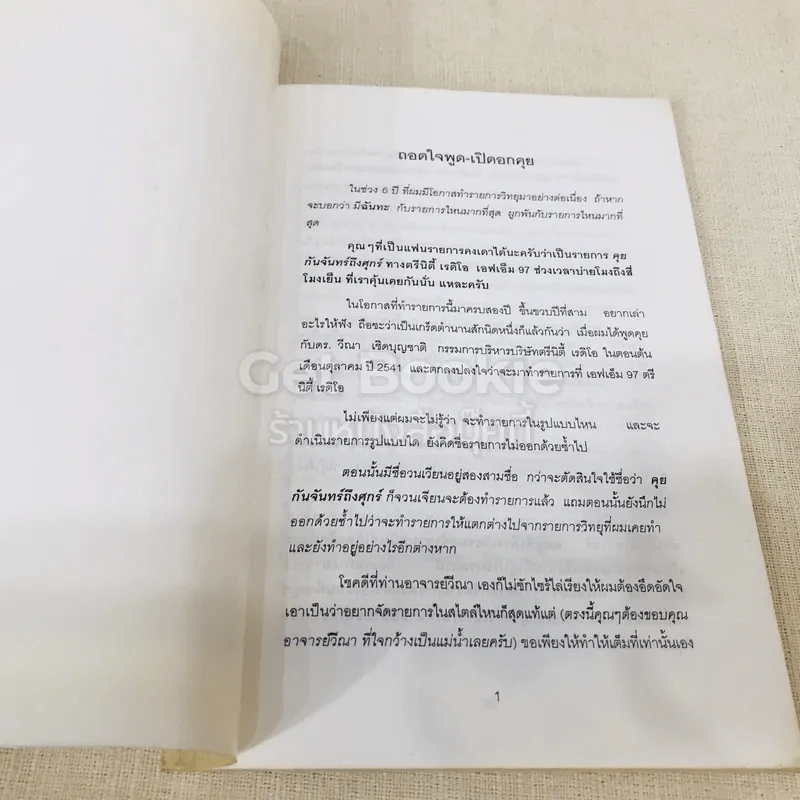 ถอดใจพูด-เปิดอกคุย
ในช่วง 6 ปี ที่ผมมีโอกาสทำรายการวิทยุมาอย่างต่อเนื่อง ถ้าหาก
จะบอกว่า มีฉันทะ กับรายการไหนมากที่สุด ผูกพันกับรายการไหนมากที่
สุด
คุณๆที่เป็นแฟนรายการคงเดาได้นะครับว่าเป็นรายการ คุย
กันจันทร์ถึงศุกร์ ทางตรีนิตี้ เรดิโอ เอฟเอ็ม 97 ช่วงเวลาบ่ายโมงถึงสี่
โมงเย็น ที่เราคุ้นเคยกันนั่น แหละครับ
ในโอกาสที่ทำรายการนี้มาครบสองปี ขึ้นขวบปีที่สาม อยากเล่า
อะไรให้ฟัง ถือซะว่าเป็นเกร็ดตำนานสักนิดหนึ่งก็แล้วกันว่า เมื่อผมได้พูดคุย
กับดร. วีณา เชิดบุญชาติ กรรมการบริหารบริษัทตรีนิตี้ เรดิโอ ในตอนต้น
เดือนตุลาคม ปี 2541 และตกลงปลงใจว่าจะมาทำรายการที่ เอฟเอ็ม 97 ตรี
นิตี้ เรดิโอ
Get Bookie
ร้านหนังสือบุ๊คกี้
ไม่เพียงแต่ผมจะไม่รู้ว่า จะทำรายการในรูปแบบไหน และจะ
ดำเนินรายการรูปแบบใด ยังคิดชื่อรายการไม่ออกด้วยซ้ำไป
ตอนนั้นมีชื่อวนเวียนอยู่สองสามชื่อ กว่าจะตัดสินใจใช้ชื่อว่า คุย
กันจันทร์ถึงศุกร์ ก็จวนเจียนจะต้องทำรายการแล้ว แถมตอนนั้นยังนึกไม่
ออกด้วยซ้ำไปว่าจะทำรายการให้แตกต่างไปจากรายการวิทยุที่ผมเคยทำ
และยังทำอยู่อย่างไรอีกต่างหาก
โชคดีที่ท่านอาจารย์วีณา เองก็ไม่ซักไซร้ไล่เรียงให้ผมต้องอึดอัดใจ
เอาเป็นว่าอยากจัดรายการในสไตล์ไหนก็สุดแท้แต่ (ตรงนี้คุณๆต้องขอบคุณ
อาจารย์วีณา ที่ใจกว้างเป็นแม่น้ำเลยครับ) ขอเพียงให้ทำให้เต็มที่เท่านั้นเอง
1